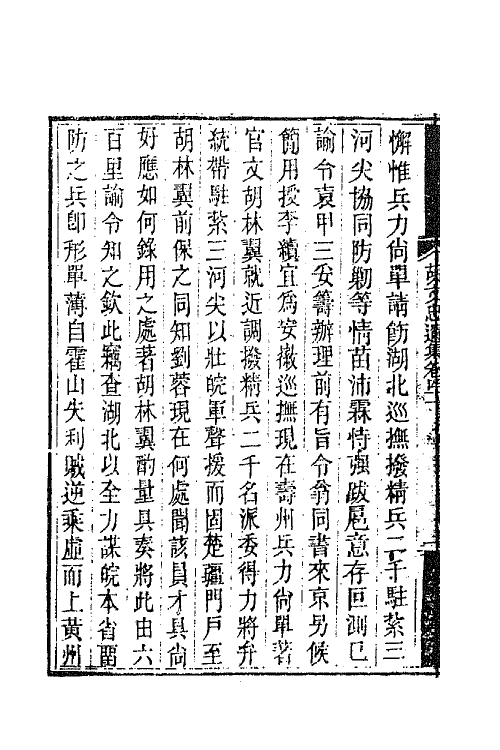 懈惟兵力尙單請飭湖北巡撫撥精兵二千駐紮三
河尖協同防勦等情苗沛霖恃强跋扈意存叵測已
諭令袁甲三妥籌辦理前有旨令翁同書來京另候
簡用授李續宜爲安徽巡撫現在壽州兵力尙單著
官文胡林翼就近調撥精兵二千名派委得力將弁
統帶駐紮三河尖以壯皖軍聲援而固楚疆門戶至
胡林翼前保之同知劉蓉現在何處聞該員才具尙
好應如何錄用之處著胡林翼酌量具奏將此由六
百里諭令知之欽此竊查湖北以全力謀皖本省畱
防之兵卽形單薄自霍山失利賊逆乘虛而上黃州
胡文忠遺集卷